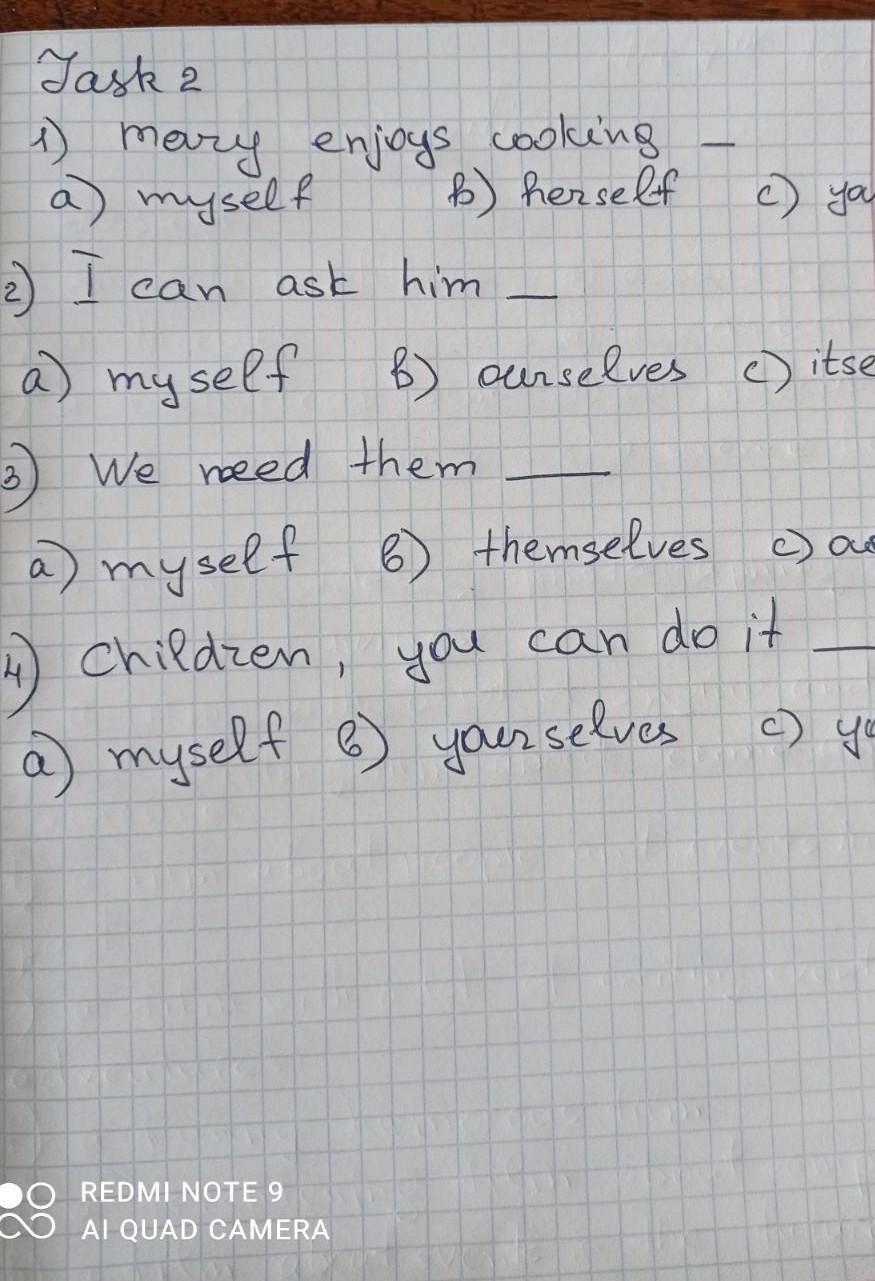 Task 2
1) Mary enjoys cooking _
a) myself b) herself c)
2) I can ask him _
a) myself b) ourselves c)
3) We need them _
a) myself b) themselves c)
4) Children, you can do it _
a) myself b) yourselves c)
REDMI NOTE 9
AI QUAD CAMERA